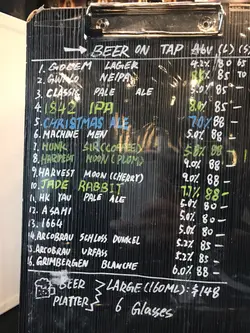 BEER ON TAP ABV (L) (S)
1. GWEILO LAGER 4.2% 80 65
2. GWEILO NEIPA
3. CLASSIC PALE ALE 5.0% 85 —
4. 1842 IPA 8.0% 85 —
5. CHRISTMAS ALE 7.0% 88 —
6. MACHINE MEN 5.0% 88 —
7. HUNK SIR (COFFEE) 5.8% 88 —
8. HARVEST MOON (PLUM) 9.0% 88 —
9. HARVEST MOON (CHERRY) 9.0% 88 —
10. JADE RABBIT 7.1% 88 —
11. HK YAU PALE ALE 5.0% 85 —
12. ASAHI 5.0% 85 —
13. 1664 5.0% 85 —
14. ARCOBRÄU SCHLOSS DUNKEL 5.2% 85 —
15. ARCOBRAU URFASS 5.2% 85 —
16. GRIMBERGEN BLANCHE 6.0% 88 —
BEER PLATTER
LARGE (160ML): $148
6 Glasses